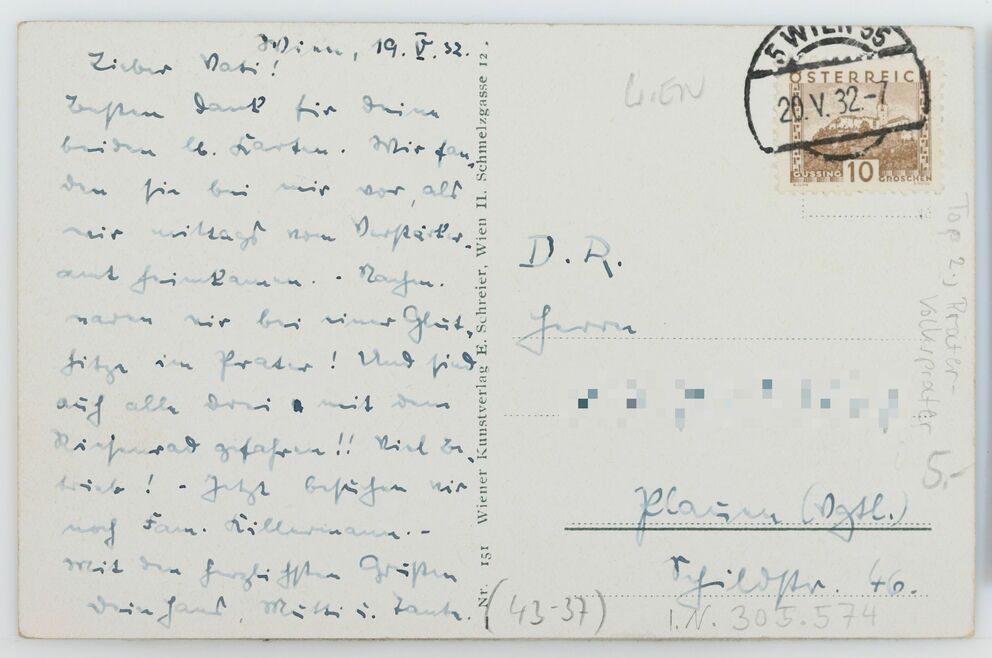 Wien, 19. V. 32.
Lieber Vati!
Besten Dank für Deine
beiden lb. Karten. Wir fan-
den sie bei mir vor, als
wir mittags vom Verstärker-
amt heimkamen. - Nachm.
waren wir bei einer Glut-
hitze im Prater! Und sind
auch alle drei mit dem
Riesenrad gefahren!! Viel Be-
trieb! - Jetzt besuchen wir
noch Fam. Killermann. -
Mit den herzlichsten Grüßen
Dein Hans, Mutti u. Tante.
Nr. 151 Wiener Kunstverlag E. Schreier, Wien II. Schmelzgasse 12.
WIEN
5 WIEN 55
20.V.32.-7
ÖSTERREICH
GÜSSING 10 GROSCHEN
D.R.
Herrn
Plauen (Vgtl.)
Schildstr. 46.
Top 2., Prater-
Volksprater
5.-
(43-37)
I.N. 305.574